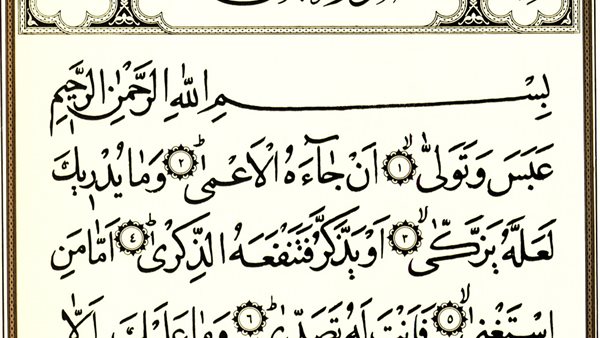 بِسْمِ اللّٰهِ الرَّحْمٰنِ الرَّحِيْمِ
عَبَسَ وَتَوَلّٰىۤ ۙ ﴿١﴾ اَنْ جَآءَهُ الْاَعْمٰىؕ ﴿٢﴾ وَمَا يُدْرِيْكَ
لَعَلَّهٗ يَزَّكّٰىۤ ۙ ﴿٣﴾ اَوْ يَذَّكَّرُ فَتَنْفَعَهُ الذِّكْرٰىؕ ﴿٤﴾ اَمَّا مَنِ
اسْتَغْنٰىۙ ﴿٥﴾ فَاَنْتَ لَهٗ تَصَدّٰىؕ ﴿٦﴾ وَمَا عَلَيْكَ اَلَّا